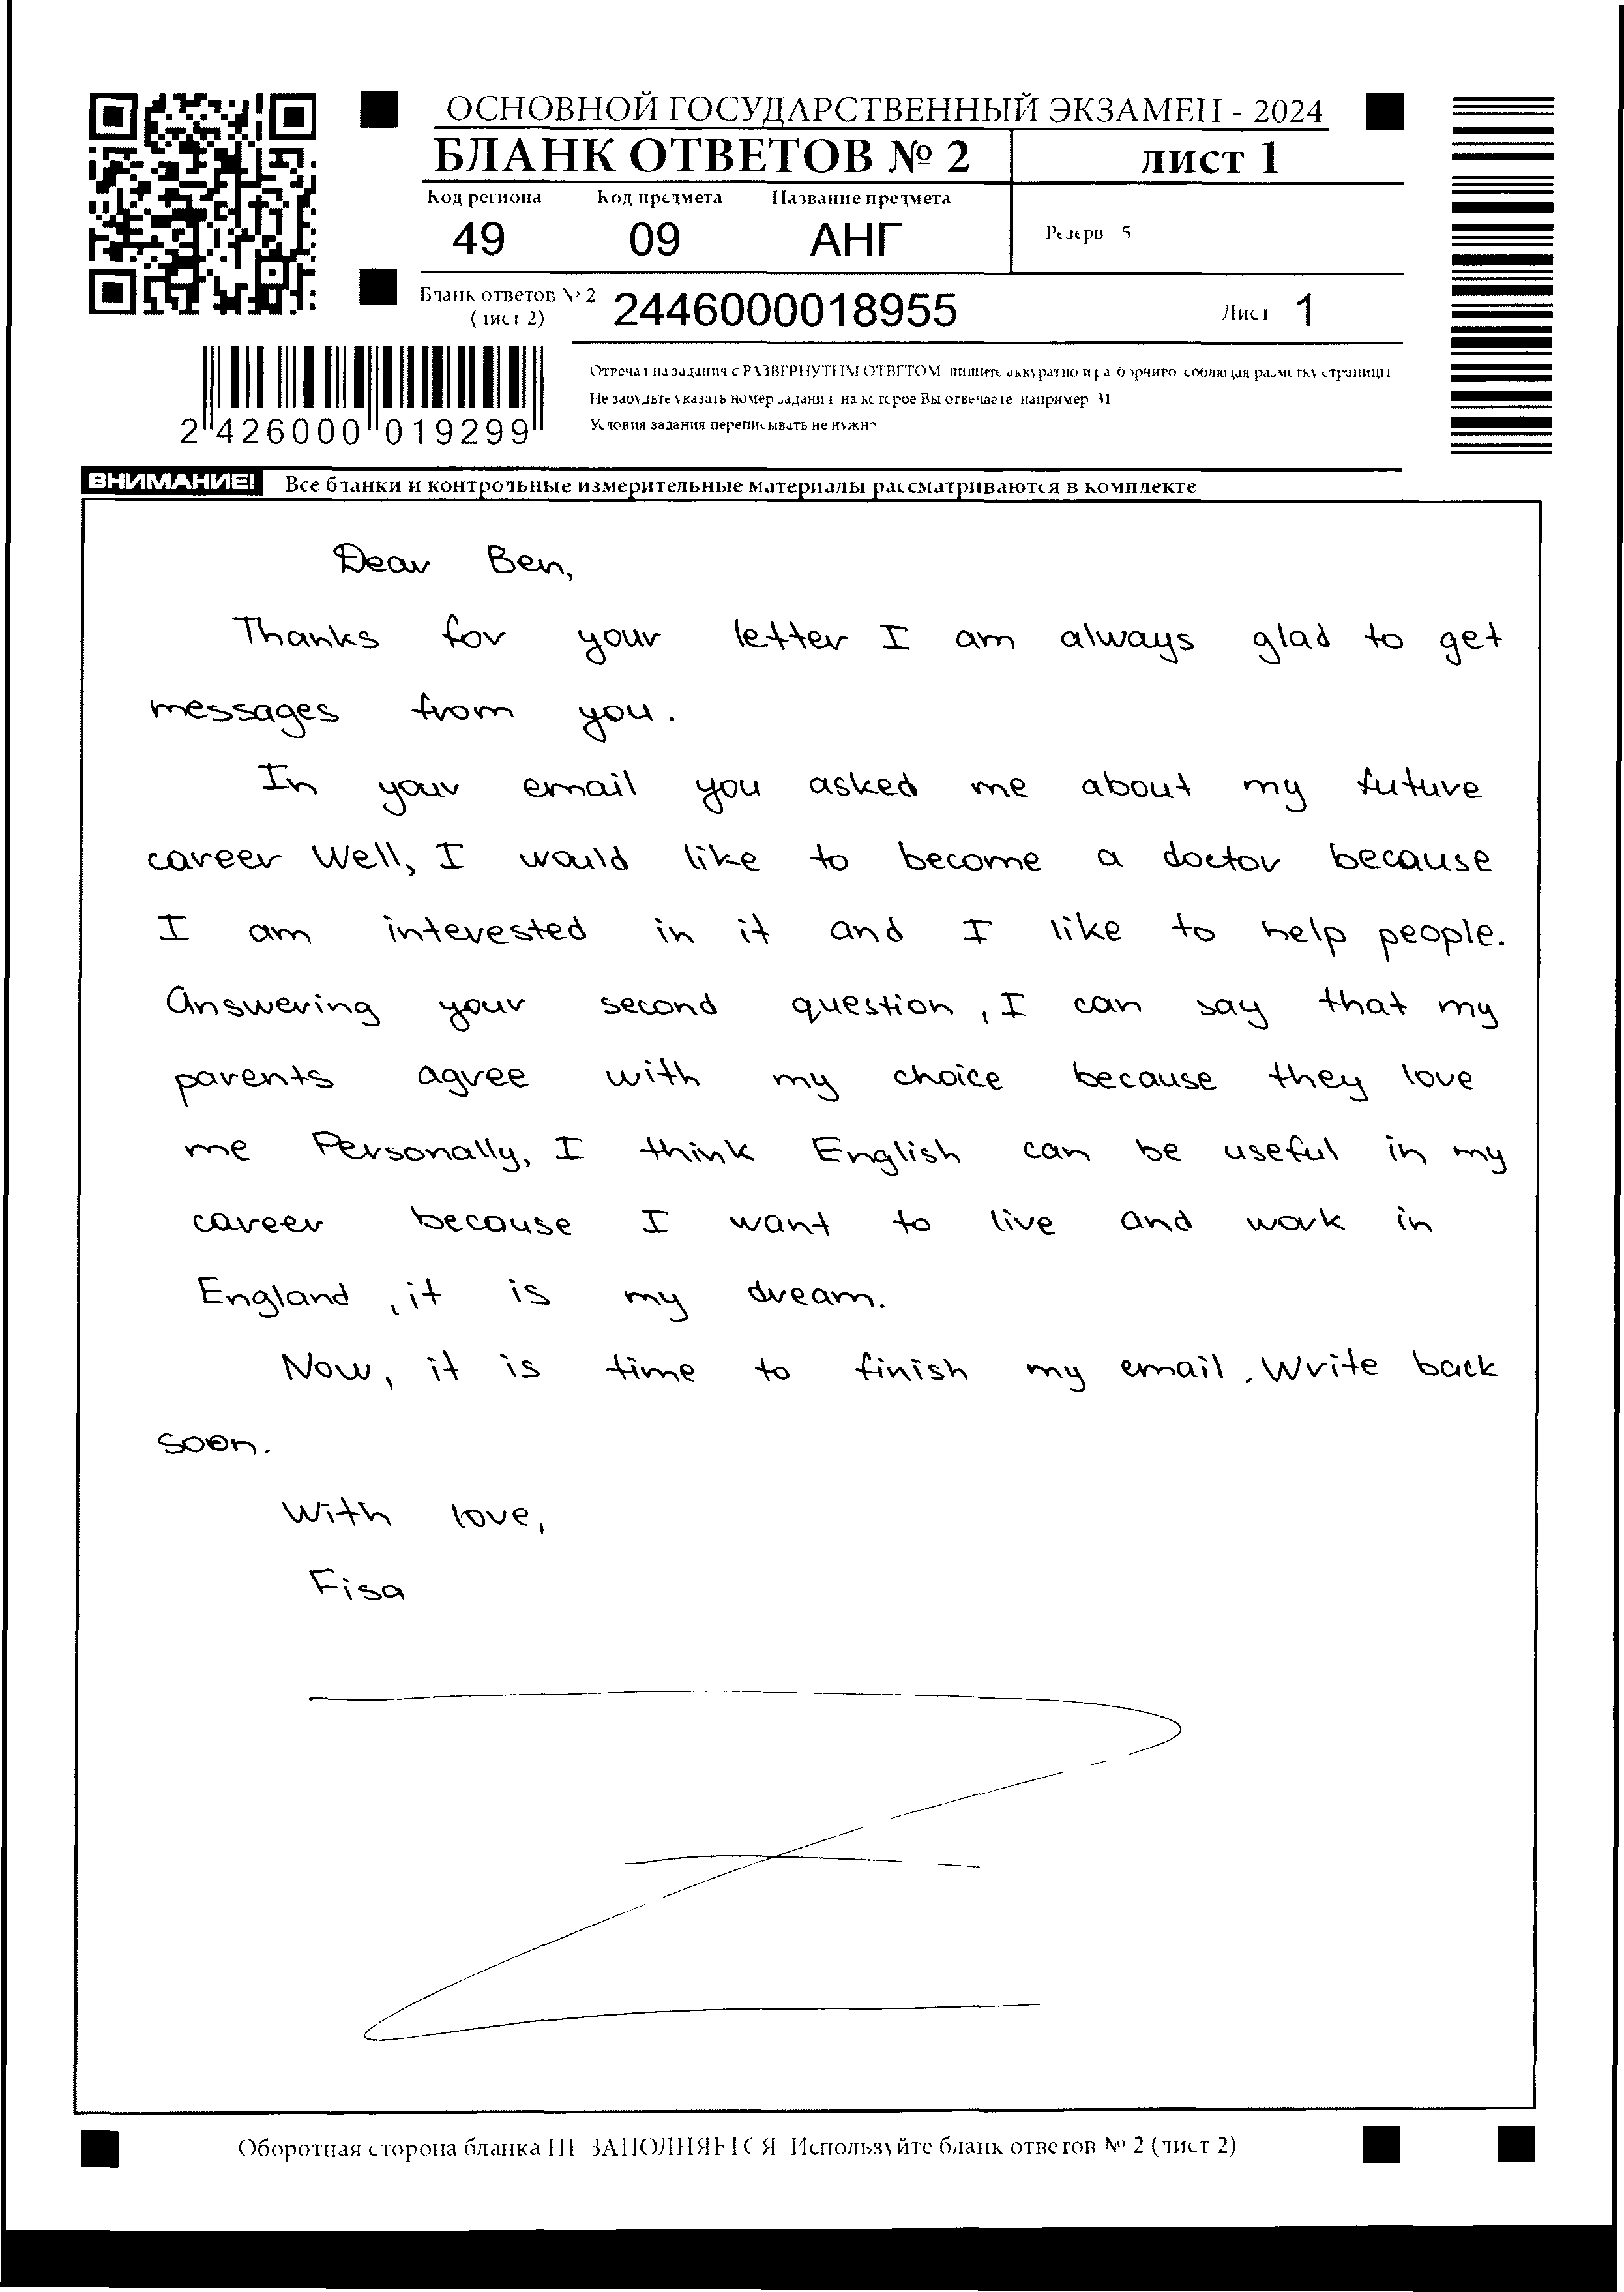 ОСНОВНОЙ ГОСУДАРСТВЕННЫЙ ЭКЗАМЕН - 2024
БЛАНК ОТВЕТОВ № 2 лист 1
Код региона Код предмета Название предмета
49 09 АНГ
Резерв 5
Бланк ответов № 2
(лист 2) 2446000018955 Лист 1
2 426000 019299
Отвечая на задания с РАЗВЕРНУТЫМ ОТВЕТОМ пишите аккуратно и разборчиво соблюдая разметку страницы
Не забудьте указать номер задания на которое Вы отвечаете например 31
Условия задания переписывать не нужно
ВНИМАНИЕ! Все бланки и контрольные измерительные материалы рассматриваются в комплекте
Dear Ben,
Thanks for your letter I am always glad to get
messages from you.
In your email you asked me about my future
career Well, I would like to become a doctor because
I am interested in it and I like to help people.
Answering your second question, I can say that my
parents agree with my choice because they love
me Personally, I think English can be useful in my
career because I want to live and work in
England, it is my dream.
Now, it is time to finish my email. Write back
soon.
With love,
Fisa
Оборотная сторона бланка НЕ ЗАПОЛНЯЕТСЯ Используйте бланк ответов № 2 (лист 2)